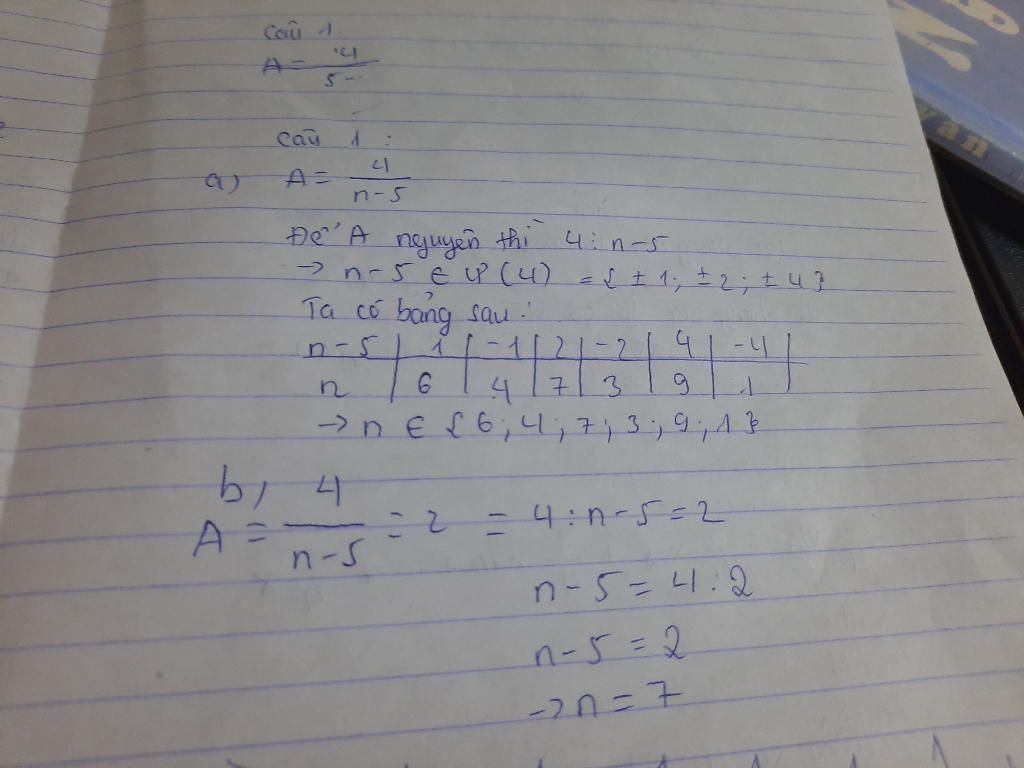 Câu 1:
A = 4/5-
Câu 1:
a) A = 4/n-5
Để A nguyên thì 4 : n-5
→ n-5 ∈ Ư(4) = {±1; ±2; ±4}
Ta có bảng sau:
n-5 | 1 | -1 | 2 | -2 | 4 | -4 |
n | 6 | 4 | 7 | 3 | 9 | 1
→ n ∈ {6; 4; 7; 3; 9; 1}
b, A = 4/n-5 = 2 = 4 : n-5 = 2
n-5 = 4 : 2
n-5 = 2
→ n = 7